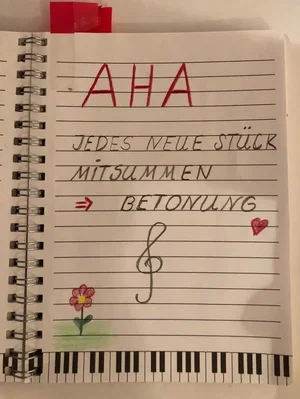 AHA
JEDES NEUE STÜCK
MITSUMMEN
⇒ BETONUNG